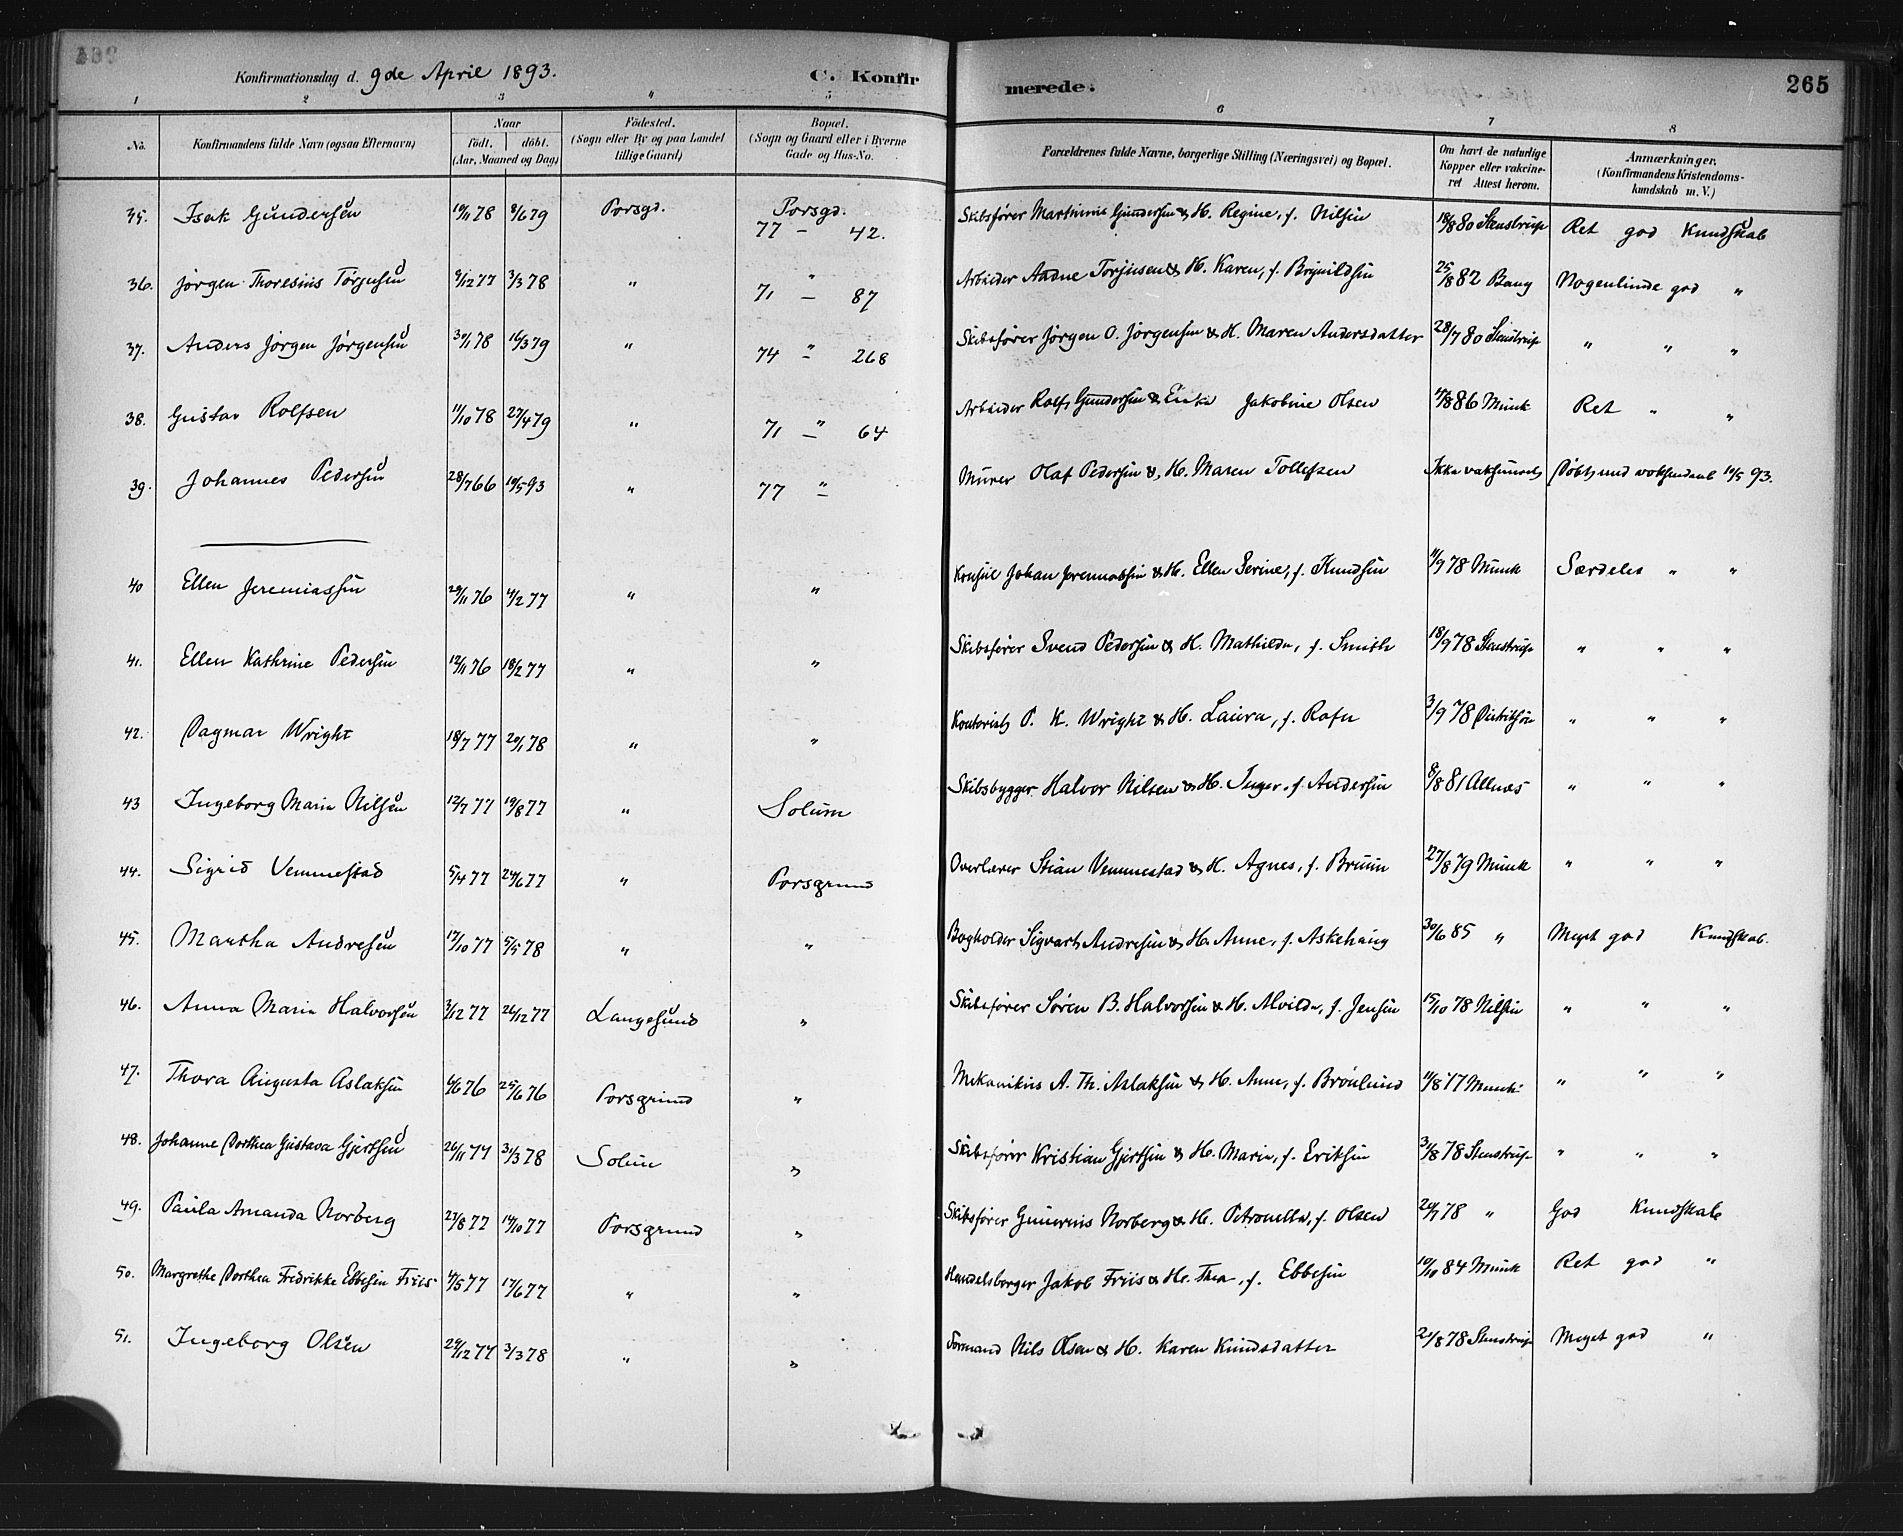 Konfirmationsdag d. 9de April 1893. C. Konfirmerede. 265
1 2 3 4 5 6 7 8
No. Konfirmandens fulde Navn (ogsaa Efternavn) Naar født. døbt. (Aar, Maaned og Dag) Fødested. (Sogn eller By og paa Landet tillige Gaard) Bopæl. (Sogn og Gaard eller i Byerne Gade og Hus-No. Forældrenes fulde Navne, borgerlige Stilling (Næringsvei) og Bopæl. Om havt de naturlige Kopper eller vakcineret Attest herom. Anmærkninger. (Konfirmandens Kristendomskundskab m. V.)
35. Isak Gundersen 10/11 78 8/6 79 Porsgd. Porsgd. 77 – 42. Skibsfører Martinius Gundersen & H. Regine, f. Nilsen 18/8 80 Stenstrup Ret god Kundskab
36. Jørgen Thoresius Torjusen 9/12 77 3/3 78 " " 71 – 87 Arbeider Aadne Torjusen & H. Karen, f. Bojnildsen 25/8 82 Bang Nogenlunde god "
37. Anders Jørgen Jørgensen 30/11 78 16/3 79 " 74 " 268 Skibsfører Jørgen O. Jørgensen & H. Maren Andersdatter 28/7 80 Stenstrup " " "
38. Gustav Rolfsen 11/10 78 27/4 79 " 71 " 64 Arbeider Rolf Gundersen & Enke Jakobine Olsen 17/8 86 Munk Ret " "
39. Johannes Pedersen 28/7 66 10/5 93 " 77 " Murer Olaf Pedersen & H. Maren Tollefsen Ikke vaksineret Døbt ved voksendaab 10/5 93.
40 Ellen Jeremiassen 29/11 76 4/2 77 " " Konsul Johan Jeremiassen & H. Ellen Serine, f. Knudsen 11/9 78 Munk Særdeles " "
41. Ellen Kathrine Pedersen 12/11 76 18/2 77 " " Skibsfører Svend Pedersen & H. Mathilde, f. Smith 18/9 78 Stenstrup " " "
42. Dagmar Wright 18/7 77 20/1 78 " " Kontorist P. K. Wright & H. Laura, f. Rafn 3/9 78 " " "
43 Ingeborg Marie Nilsen 12/7 77 19/8 77 " Solum Skibsbygger Halvor Nilsen & H. Inger, f. Andersen 8/8 81 Allnæs " " "
44. Sigrid Vemmestad 5/4 77 24/6 77 " Porsgrund Overlærer Stian Vemmestad & H. Agnes, f. Bruun 27/8 79 Munk " " "
45. Martha Andresen 17/10 77 5/5 78 " " Bogholder Sigvart Andresen & H. Anne, f. Askehaug 30/6 85 " Meget god Kundskab.
46. Anna Marie Halvorsen 3/12 77 26/12 77 Langesund " Skibsfører Søren B. Halvorsen & H. Alvilde, f. Jensen 15/10 78 Nilsen " " "
47. Thora Augusta Aslaksen 4/6 76 25/6 76 Porsgrund " Mekanikus A. Th. Aslaksen & H. Anne, f. Brønlund 11/8 77 Munk " " "
48. Johanne Dorthea Gustava Gjertsen 26/11 77 31/3 78 Solum " Skibsfører Kristian Gjertsen & H. Marie, f. Eriksen 31/8 78 Stenstrup " " "
49. Paula Amanda Norberg 27/8 77 14/10 77 Porsgrund " Skibsfører Gunerius Norberg & H. Petronelle, f. Olsen 24/7 78 " God Kundskab
50. Margrethe Dorthea Fredrikke Ebbesen Friis 4/5 77 17/6 77 " " Handelsborger Jakob Friis & H. Thea, f. Ebbesen 10/10 84 Munk Ret god "
51. Ingeborg Olsen 29/12 77 3/3 78 " " Formand Nils Olsen & H. Karen Knudsdatter 21/8 78 Stenstrup Meget god "